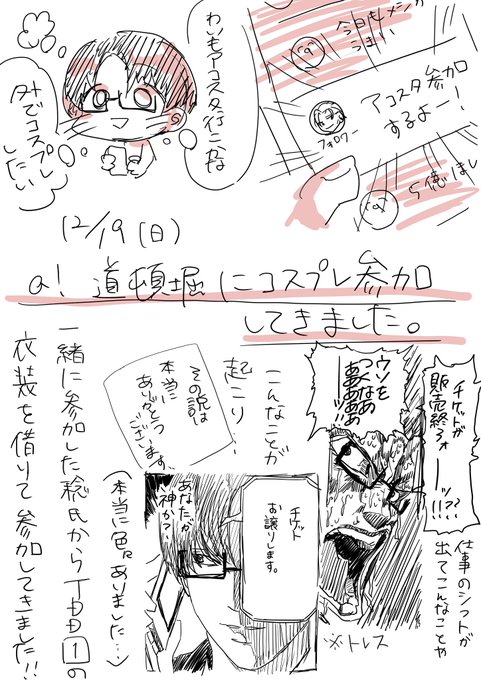 今日もメシが
うまい
アコスタ参加
するよー!
フォロワー
5億ほし
わいもアコスタ行こかな
外でコスプレ
したい
12/19(日)
a!道頓堀にコスプレ参加
してきました。
チケットが
販売終了ォ
ーーーッ!!??
ウソを
つくなあ
ああああ
ーーッ!!
仕事のシフトが
出てこんなことや
※トレス
こんなことが
起こり
その説は
本当に
ありがとう
ございます。
チケット
お譲りします。
あなたが
神か?
(本当に色々ありました…)
一緒に参加した稔氏からTDD1の
衣装を借りて参加してきました!!